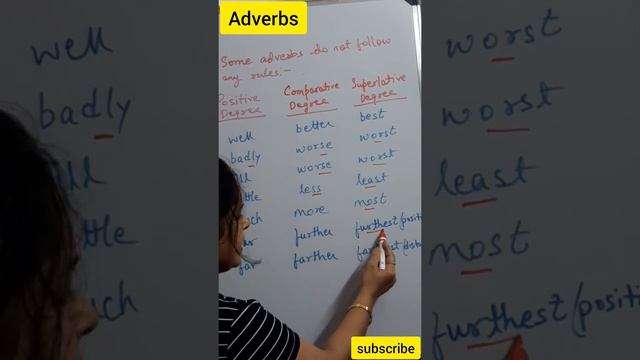 Adverbs
Some adverbs do not follow
any rules:-
Positive Comparative Superlative
Degree Degree Degree
well better best
badly worse worst
ll worse worst
ttle less least
ch more most
further furthest/positi
far farther
subscribe
well
badly
ttle
uch
worst
worst
least
most
furthest/positi